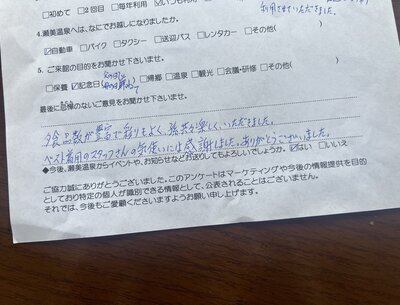 □初めて □2回目 □毎年利用 ☑いつも利用
利用させていただきました。
4.瀬美温泉へは、なにでお越しになりましたか。
☑自動車 □バイク □タクシー □送迎バス □レンタカー □その他( )
5. ご来館の目的をお聞かせ下さいませ。
□保養 ☑記念日( ) □帰郷 □温泉 □観光 □会議・研修 □その他( )
最後に忌憚のないご意見をお聞かせ下さいませ。
夕食品数が豊富で彩りもよく、孫共々楽しくいただきました。
ベスト着用のスタッフさんの気使いには感謝しました。ありがとうございました。
◆今後、瀬美温泉からイベントや、お知らせなどお送りしてもよろしいでしょうか。☑はい □いいえ
ご協力誠にありがとうございました。このアンケートはマーケティングや今後の情報提供を目的
としており特定の個人が識別できる情報として、公表されることはございません。
それでは、今後もご愛顧くださいますようお願い申し上げます。